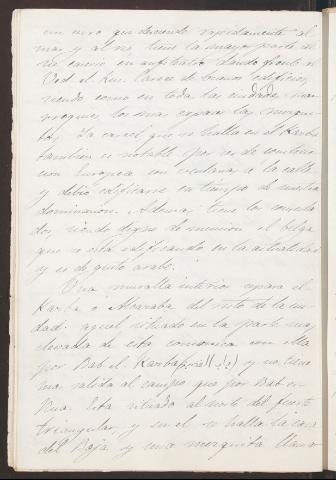 un cerro que desciende rapidamente al
mar, y al rio, tiene la mayor parte de
su caserio en anfiteatro dando frente
Ved el Kus. Carece de buenos edificios,
siendo como en toda las ciudades mar
roquies los mas capaces las mezqui-
tas. La carcel que se halla en el Karba
tambien es notable por ser de construc
cion Europea con ventanas a la calle
y debio edificarse en tiempo de nuestra
dominacion. Ademas tiene los consula
dos, siendo digno de mencion el belga
que se esta edificando en la actualidad
y es de gusto arabe.
Una muralla interior separa el
Karba o Alcazaba del resto de la ciu-
dad: aquel situado en la parte mas
elevada de esta comunica con ella
por Bab el Karba (باب القصبة) y no tiene
mas salida al campo que por Bab en
Situado al norte del fuerte
triangular, y en el se halla la casa
del Baja y una mezquita